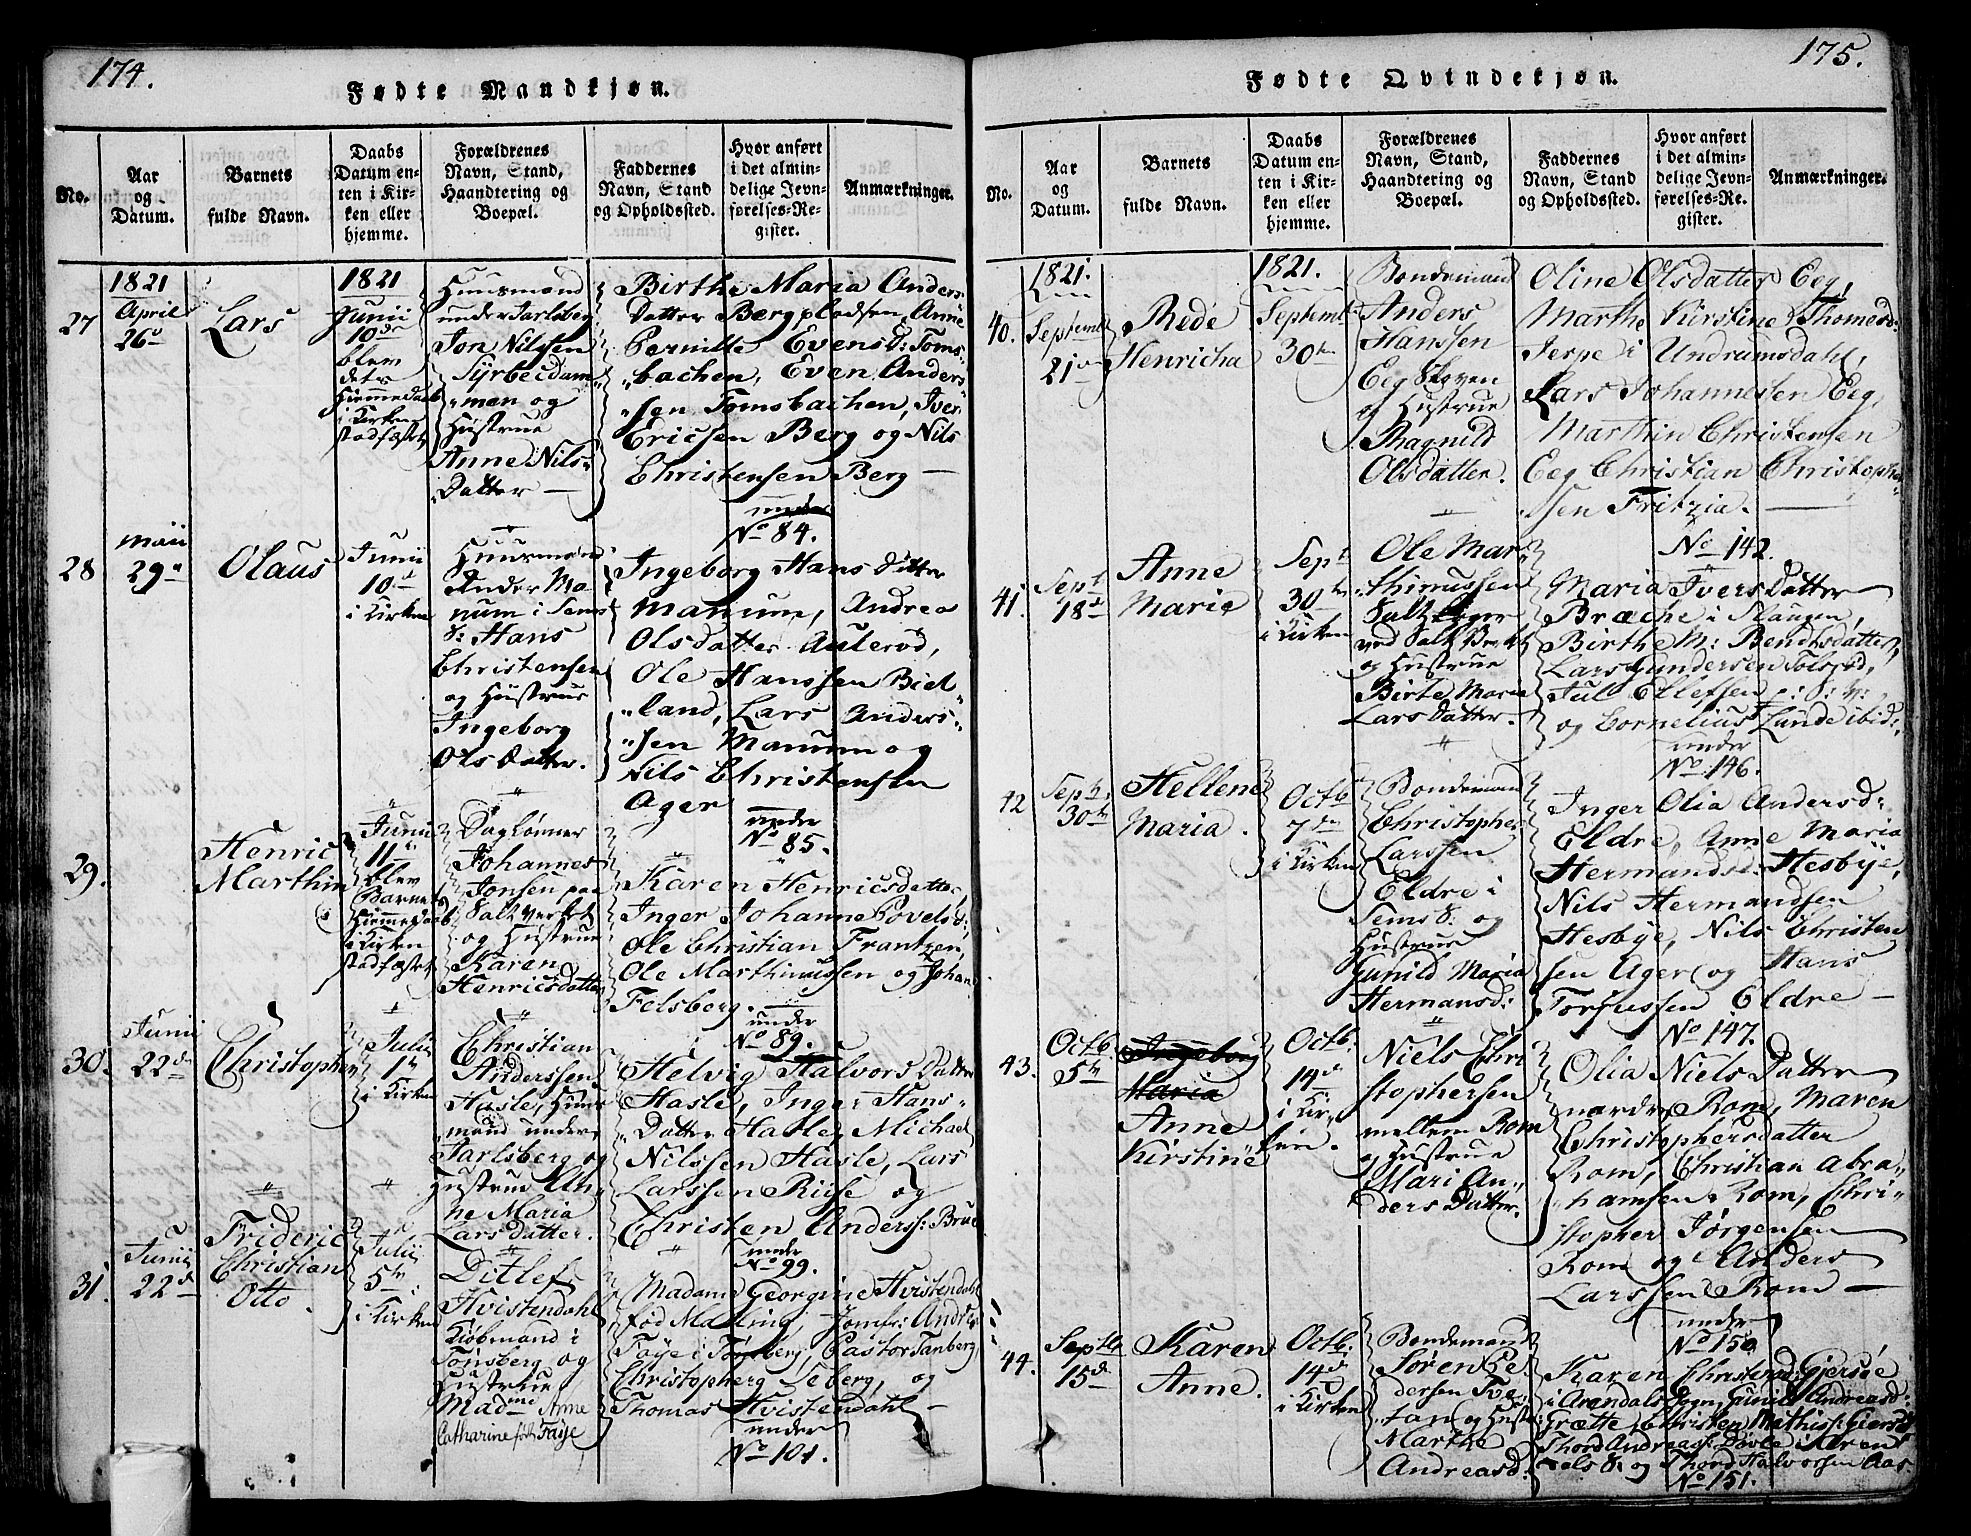 174.
Fødte Mandkjøn.
No.
Aar
og
Datum.
Barnets
fulde Navn.
Daabs
Datum en-
ten i Kir-
ken eller
hjemme.
Forældrenes
Navn, Stand,
Haandtering og
Boepæl.
Faddernes
Navn, Stand
og Opholdssted.
Hvor anført
i det almin-
delige Jevn-
førelses-Re-
gister.
Anmærkninger.
27
1821
April
26d
Lars
1821
Junii
10de
blev
dets
Hiemmedaab
i Kirken
stadfæstet
Huusmand
under Jarlsberg
Jon Nilsen
og
Hustrue
Anne Nils-
Datter —
Birthe Maria Anders
Datter Bergpladsen, Anne
Pernille Evensd: Toms-
bachen, Even Anders-
sen Tomsbachen, Iver
Ericsen Berg og Nils
Christensen Berg —
under
No 84.
28
Maii
29
Olaus
Junii
10d
i Kirken
Huusmand
under Ma-
num i Sems
S: Hans
Christensen
og Hustrue
Ingeborg
Ols Datter.
Ingeborg Hans Datter
Manum, Andrea
Olsdatter Aulerød,
Ole Hanssen Biel-
land, Lars Anders-
sen Manum og
Nils Christensen
Ager
under
No 85.
29.
Henric
Marthin
Junii
11
blev
Barnets
Hiemmedaab
i Kirken
stadfæstet
Daglønner
Johannes
Jonsen paa
Saltverket
og Hustrue
Karen
Henricsdatter
Karen Henricsdatter,
Inger Johanne Povelsd:,
Ole Christian Frantzen,
Ole Marthinussen og Johan
Felsberg.
under
No 89.
30.
Junii
22d
Christopher
Julii
1
i Kirken
Christian
Anderssen
Hasle, Huus-
mand under
Jarlsberg og
Hustrue An-
ne Maria
Lars Datter.
Helvig Halvors Datter
Hasle, Inger Hans-
Datter Hasle, Michael
Nilssen Hasle, Lars
Larssen Riise og
Christen Anderss: Brue
under
No 99.
31.
Junii
22d
Frideric
Christian
Otto.
Julii
5te
i Kirken
Ditlef
Hvistendahl
Kiøbmand i
Tønsberg og
Hustrue
Madme Anne
Catharine fød Faÿe
Madam Georgine Hvistendahl
fød Malling, Jomfr: Andrea
Faÿe i Tønsberg, Pastor Tanberg
Christopherg Seberg, og
Thomas Hvistendahl —
under
No 101.
175.
Fødte Qvindekjøn.
No.
Aar
og
Datum.
Barnets
fulde Navn.
Daabs
Datum en-
ten i Kir-
ken eller
hjemme.
Forældrenes
Navn, Stand,
Haandtering og
Boepæl.
Faddernes
Navn, Stand
og Opholdssted.
Hvor anført
i det almin-
delige Jevn-
førelses-Re-
gister.
Anmærkninger.
40.
1821.
Septembr
21
Rede
Henricha
1821.
Septembr
30te
Bondemand
Anders
Hanssen
Eeg Skoven
og Hustrue
Ragnild
Olsdatter.
Oline Olsdatter Eeg,
Marthe Kirstine Thomesd:
Jerpe i Undrumsdahl,
Lars Johannesen Eeg,
Marthin Christensen
Eeg Christian Christopher-
sen Fritzia. —
No 142.
41.
Sept
18d
Anne
Marie
Sept
30te
i Kirken
Ole Mar-
thinussen
ved Salt Verket
og Hustrue
Birte Marie
Lars Datter.
Maria Ivers Datter
Bræche i Slaugen,
Birthe M: Bendtsdatter,
Lars Gundersen Tolsrød,
Jul Ellefsen
og Cornelius Lunde ibid:
under
No 146.
42
Sept.
30te
Hellene
Maria.
Octb
7de
i Kirken
Bondemand
Christopher
Larssen
Eldre i
Sems S: og
Hustrue
Gunild Maria
Hermansd:
Inger Olia Andersd:
Eldre, Anne Maria
Hermandsd: Hesbÿe,
Nils Hermandsen
Hesbÿe, Nils Christen
sen Ager og Hans
Torfussen Eldre —
No 147.
43.
Octb
5te
Ingeborg
Maria
Anne
Kirstine
Octb:
14d
i Kir-
ken.
Niels Chri
stophersen
mellem Rom
og Hustrue
Mari An-
ders Datter.
Olia Niels Datter
nordre Rom, Maren
Christophersdatter
Rom, Christian Abra-
hamsen Rom, Chri-
stopher Jørgensen
Rom og Anders
Larssen Rom —
under
No 150
44.
Septb
15d
Karen
Anne.
Octb:
14d
i Kirken
Bondemand
Søren Pe
dersen Tve-
tan og Hustr
Marthe
Andreasd:
Karen Christensd: Giersøe
i Arendals Sogn, Gunild Andreasd:
Grætte, Christen Mathiss: Giersøe
Thord Andreass: Døvle i Aren
dels S: og Thord Halvorsen Aas.
No 151.